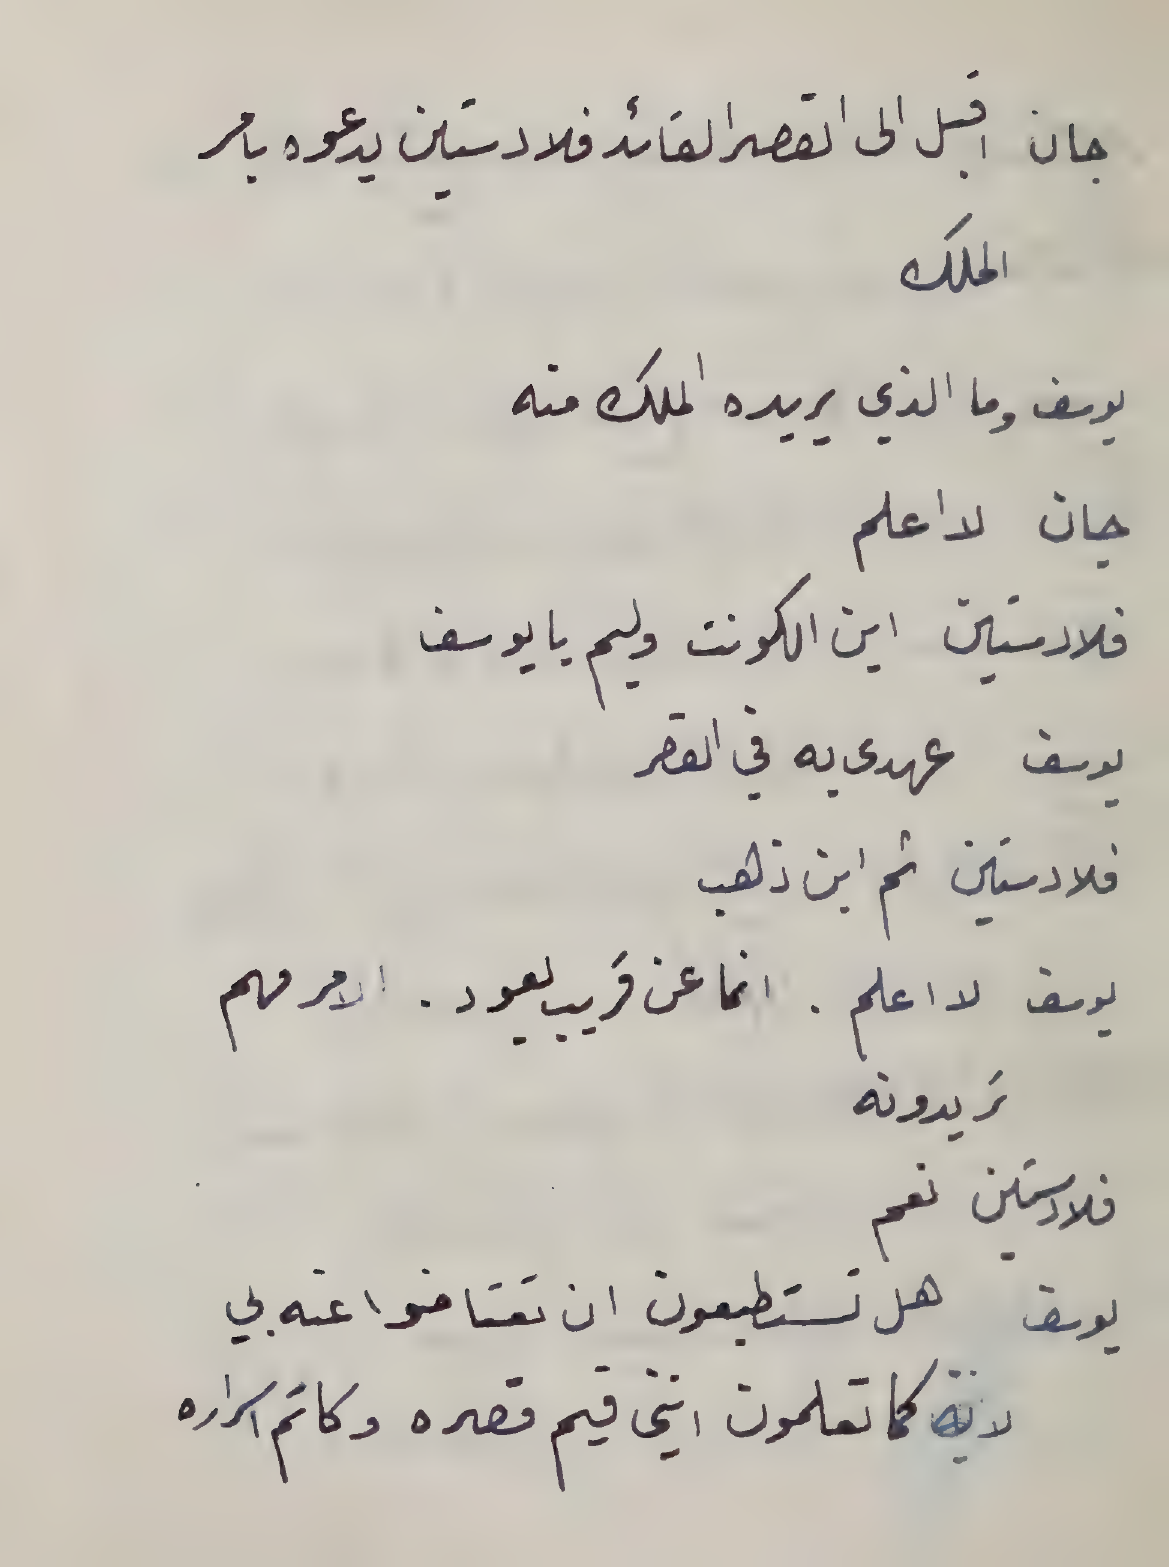 جان اقبل الى القصر القائد فلادستين يدعوه بامر
الملك
يوسف وما الذي يريده الملك منه
جان لا اعلم
فلادستين اين الكونت وليم يا يوسف
يوسف عهدى به في القصر
فلادستين ثم اين ذهب
يوسف لا اعلم . انما عن قريب يعود . الامر مهم
تريدونه
فلادستين نعم
يوسف هل تستطيعون ان تعتاضوا عنه بي
لانه كما تعلمون انني قيم قصره وكاتم اسراره